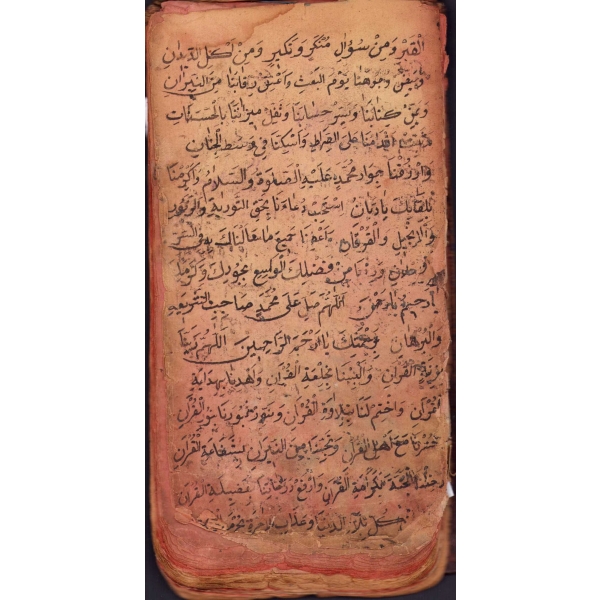 الْقَبْرِ وَمِنْ سُؤَالِ مُنْكَرٍ وَنَكِيرٍ وَمِنْ اَكْلِ الدِّيدَانِ
وَبَيِّضْ وُجُوهَنَا يَوْمَ الْبَعْثِ وَاَعْتِقْ رِقَابَنَا مِنَ النِّيرَانِ
وَيَمِّنْ كِتَابَنَا وَيَسِّرْ حِسَابَنَا وَثَقِّلْ مِيزَانَنَا بِالْحَسَنَاتِ
وَثَبِّتْ اَقْدَامَنَا عَلَى الصِّرَاطِ وَاَسْكِنَّا فِى وَسَطِ الْجِنَانِ
وَارْزُقْنَا جِوَارَ مُحَمَّدٍ عَلَيْهِ الصَّلٰوةُ وَالسَّلَامُ وَاَكْرِمْنَا
بِلِقَائِكَ يَادَيَّانُ اِسْتَجِبْ دُعَاءَنَا بِحَقِّ التَّوْرٰيةِ وَالزَّبُورِ
وَالْاِنْجِيلِ وَالْفُرْقَانِ وَاَعْطِنَا جَمِيعَ مَا سَاَلْنَاكَ بِهِ فِى السِّرِّ
وَزِدْنَا مِنْ فَضْلِكَ الْوَاسِعِ بِجُودِكَ وَكَرَمِكَ
يَارَحِيمُ يَارَحْمٰنُ اَللّٰهُمَّ صَلِّ عَلَى مُحَمَّدٍ صَاحِبِ الشَّرِيعَةِ
وَالْبُرْهَانِ بِرَحْمَتِكَ يَا اَرْحَمَ الرَّاحِمِينَ اَللّٰهُمَّ زَيِّنَّا
بِزِينَةِ الْقُرْاٰنِ وَاَلْبِسْنَا بِخِلْعَةِ الْقُرْاٰنِ وَاهْدِنَا بِهِدَايَةِ
الْقُرْاٰنِ وَاخْتِمْ لَنَا بِتِلَاوَةِ الْقُرْاٰنِ وَنَوِّرْ قُبُورَنَا بِنُورِ الْقُرْاٰنِ
وَاحْشُرْنَا مَعَ اَهْلِ الْقُرْاٰنِ وَنَجِّنَا مِنَ النِّيرَانِ بِشَفَاعَةِ الْقُرْاٰنِ
وَاَدْخِلْنَا الْجَنَّةَ بِكَرَامَةِ الْقُرْاٰنِ وَارْفَعْ دَرَجَاتِنَا بِفَضِيلَةِ الْقُرْاٰنِ
كُلَّ بَلَاءِ الدُّنْيَا وَعَذَابِ الْاٰخِرَةِ بِحُرْمَةِ